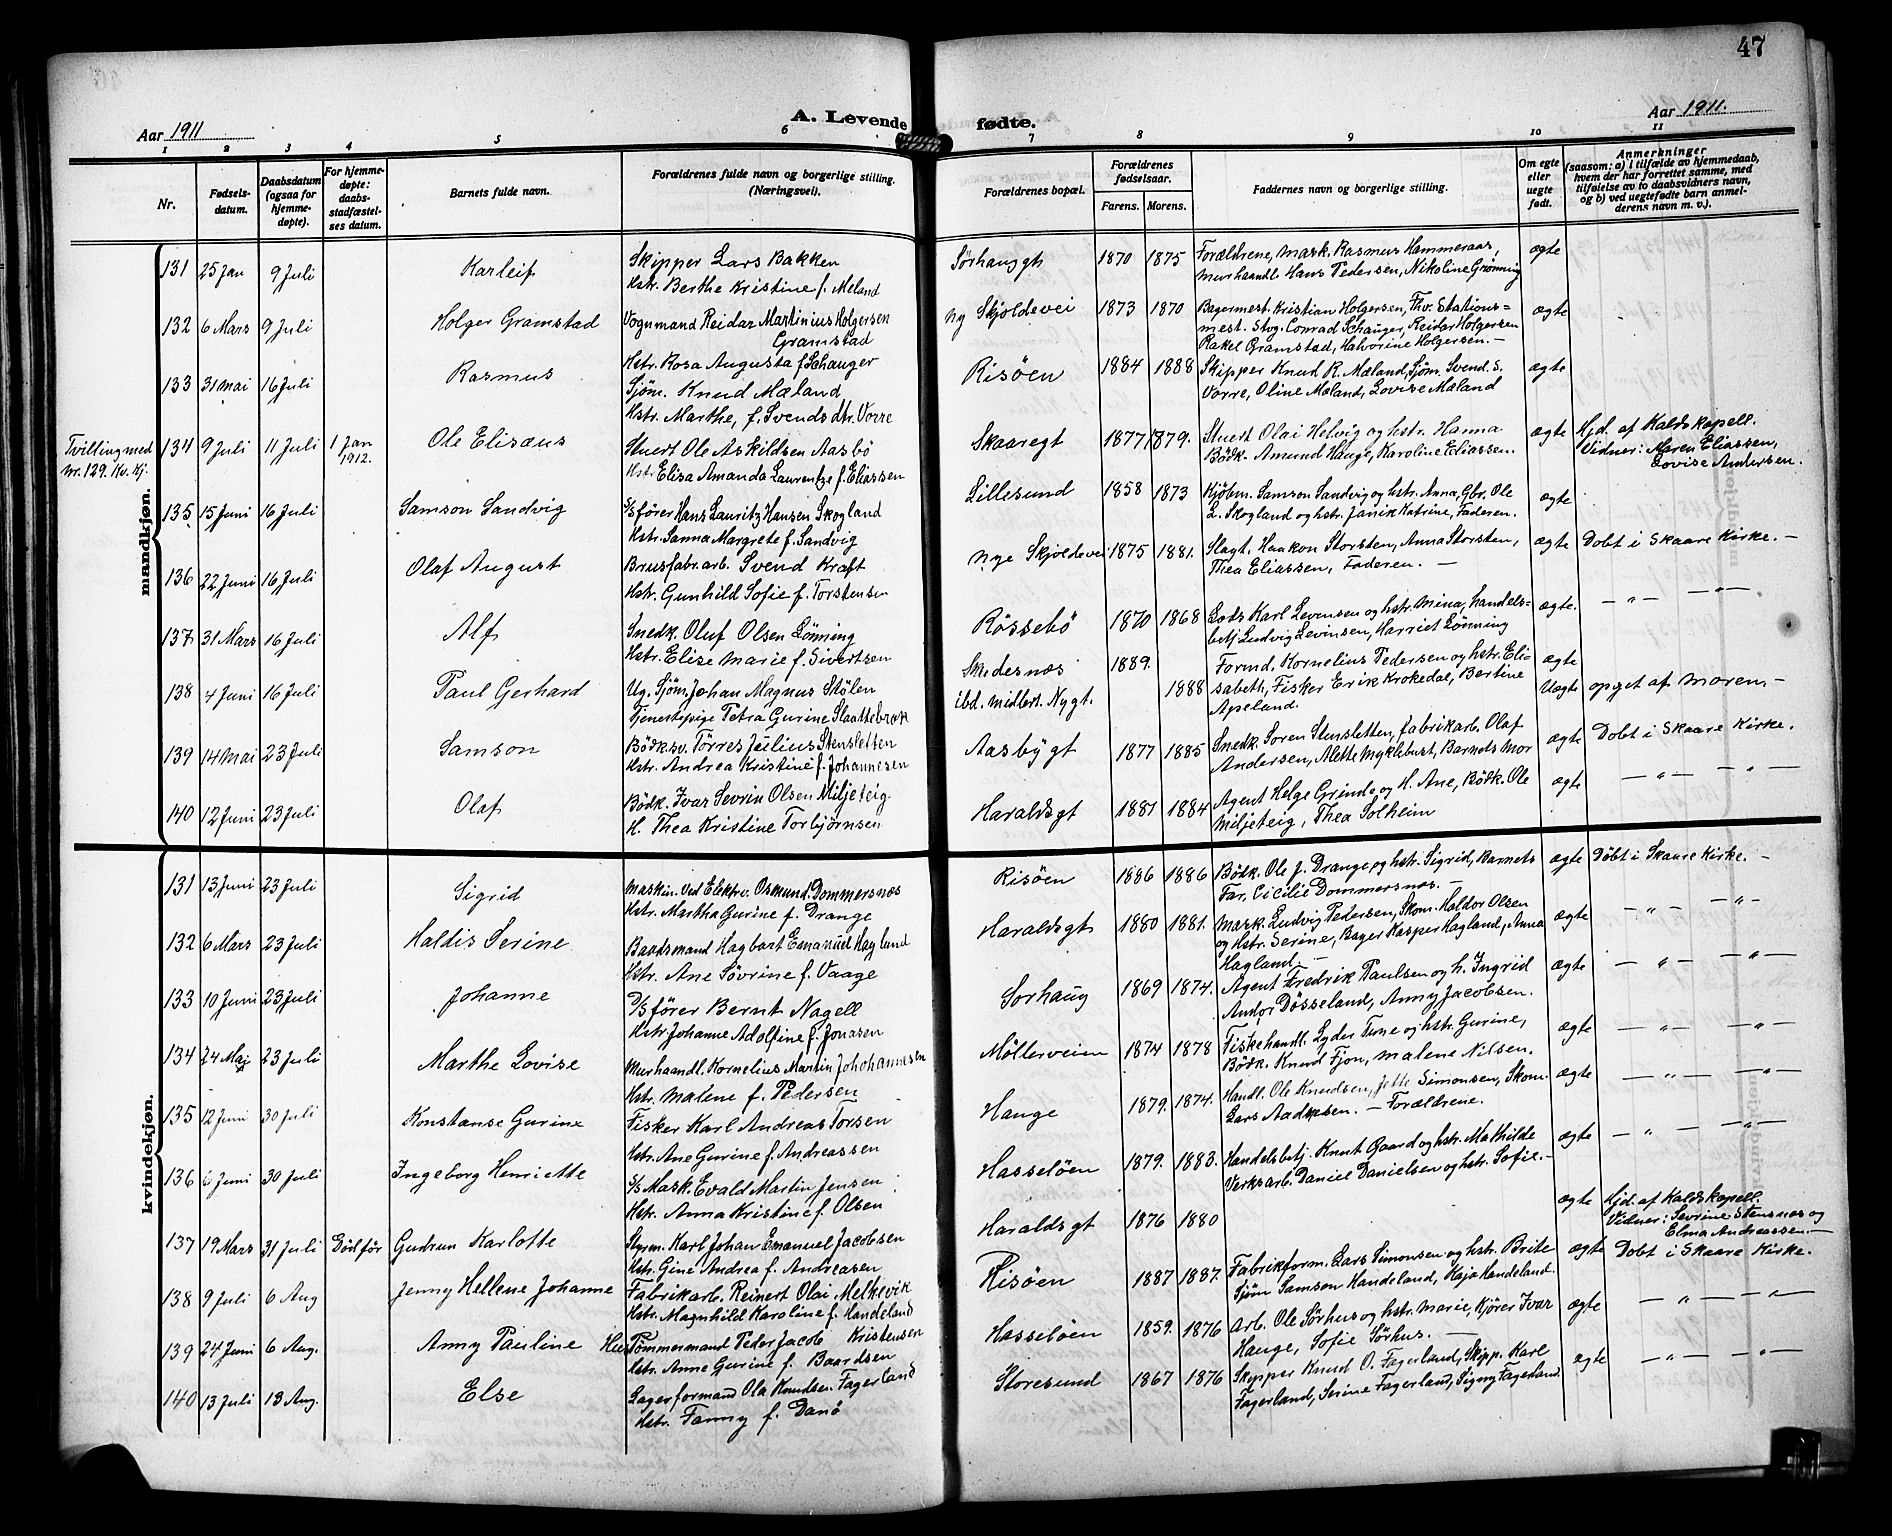 47
Aar 1911
A. Levende fødte.
Aar 1911.
1 2 3 4 5 6 7 8 9 10 11
Nr.
Fødsels-
datum.
Daabsdatum
(ogsaa for
hjemme-
døpte).
For hjemme-
døpte:
daabs-
stadfæstel-
ses datum.
Barnets fulde navn.
Forældrenes fulde navn og borgerlige stilling.
(Næringsvei).
Forældrenes bopæl.
Forældrenes
fødselsaar.
Farens. Morens.
Faddernes navn og borgerlige stilling.
Om egte
eller
uegte
født.
Anmerkninger
(saasom: a) i tilfælde av hjemmedaab,
hvem der har forrettet samme, med
tilføielse av to daabsvidners navn,
og b) ved uegtefødte barn anmel-
derens navn m. v.).
mandkjøn.
131 25 Jan 9 Juli Karleif Skipper Lars Bakken Sørhauggt 1870 1875 Forældrene, Mask. Rasmus Hammeraas, ægte
Hstr. Berthe Kristine f. Meland Murhaandl. Hans Pedersen, Nikoline Grønning
132 6 Mars 9 Juli Holger Gramstad Vognmand Reidar Martinius Holgersen ny Skjoldevei 1873 1870 Bagermest. Kristian Holgersen, Fhv. Stations= ægte
Gramstad mest. Stvg. Conrad Schauger, Reidar Holgersen
Hstr. Rosa Augusta f. Schauger Rakel Gramstad, Halvorine Holgersen.–
133 31 Mai 16 Juli Rasmus Sjøm. Knud Mæland Risöen 1884 1888 Skipper Knud R. Mæland, Sjøm. Svend S. ægte
Hstr. Marthe, f. Svendsdtr. Vorre Vorre, Oline Mæland, Lovise Mæland
Tvilling med
nr. 129. Kv. Kj.
134 9 Juli 11 Juli 1 Jan 1912. Ole Elisæus Stuert Ole Askildsen Aasbö Skaaregt 1877 1879. Stuert Olai Helvig og hstr. Hanna ægte Hjd. af Kaldskapell.
Hstr. Elisa Amanda Laurentze f. Eliassen Bödk. Amund Hauge, Karoline Eliassen. Vidner: Maren Eliassen,
Lovise Andersen.
135 15 Juni 16 Juli Samson Sandvig S/S fører Hans Lauritz Hansen Skogland Lillesund 1858 1873 Kjøbm. Samson Sandvig og hstr. Anna, Gbr. Ole ægte
Hstr. Sanna Margrete f. Sandvig L. Skogland og hstr. Janik Katrine, Faderen.
136 22 Juni 16 Juli Olaf August Brusfabr.arb. Svend Kraft nye Skjoldevei 1875 1881. Slagt. Haakon Storsten, Anna Storsten, ægte Døbt i Skaare Kirke.–
Hstr. Gunhild Sofie f. Torstensen Thea Eliassen, Faderen. –
137 31 Mars 16 Juli Alf Snedk. Oluf Olsen Lönning Røssebø 1870 1868 Lods Karl Levensen og hstr. Mina, handels= ægte. – " – – " –
Hstr. Elise Marie f. Sivertsen betj. Ludvig Levinsen, Harriet Lønning
138 4 Juni 16 Juli Paul Gerhard Ug. Sjøm. Johan Magnus Stölen Skudesnæs 1889. Formd. Kornelius Pedersen og hstr. Eli= ægte
Tjenestepige Petra Gurine Slaattebræk ibd. midlert. Nygt. 1888 sabeth, Fisker Erik Krokedal, Bertine Uægte opget af moren.–
Apeland.
139 14 Mai 23 Juli Samson Bödksv. Törres Julius Stensletten Aasbygt 1877 1885 Snedk. Soren Stensletten, fabrikarb. Olaf ægte Dobt i Skaare Kirke.
Hstr. Andrea Kristine f. Johannesen Andersen, Alette Myklebust, Barnets Mor
140 12 Juni 23 Juli Olaf Bödk. Ivar Sevrin Olsen Miljeteig Haraldsgt 1881 1884 Agent Helge Grinde og H. Ane, Bödk. Ole ægte – " – – " –
H. Thea Kristine Torbjörnsen Miljeteig, Thea Solheim
kvindekjøn.
131 13 Juni 23 Juli Sigrid Maskin. ved Elektrv. Osmund Dommersnæs Risöen 1886 1886 Bödk. Ole J. Drange og hstr. Sigrid, Barnets ægte Döbt i Skaare Kirke. –
Hstr. Martha Gurine f. Drange Far, Cicilie Dommersnæs. –
132 6 Mars 23 Juli Haldis Serine Baadsmand Hagbart Emanuel Hagland Haraldsgt 1880 1881. Mask. Ludvig Pedersen, Skom. Haldor Olsen ægte – " – – " –
Hstr. Ane Sövrine f. Vaage og Hstr. Serine, Bager Kasper Hagland, Anna
Hagland. –
133 10 Juni 23 Juli Johanne D/S fører Bernt Nagell Sorhaug 1869 1874. Agent Fredrik Paulsen og h. Ingrid ægte – " – – " –
Hstr. Johanne Adolfine f. Jonasen Andor Dösseland, Anny Jacobsen.
134 24 Mai 23 Juli Marthe Lovise Murhaandl. Kornelius Martin Johohannesen Möllerveien 1874 1878 Fiskehandl. Lyder Tune og hstr. Gurine, ægte – " – – " –
Hstr. Malene f. Pedersen Bödk. Knud Fjon, Malene Nilsen.
135 12 Juni 30 Juli Konstanse Gurine Fisker Karl Andreas Torsen Hauge 1879. 1874. Handl. Ole Knudsen, Jette Simonsen, Skom. ægte – " – – " –
Hstr. Ane Gurine f. Andreassen Lars Aadnesen. – Forældrene.
136 6 Juni 30 Juli Ingeborg Henriette S/S Mask. Evald Martin Jensen Hasselöen 1879. 1883. Handelsbetj. Knut Gaard og hstr. Mathilde ægte – " – – " –
Hstr. Anna Kristine f. Olsen Verksarb. Daniel Danielsen og hstr. Sofie.–
137 19 Mars 31 Juli Död för Gudrun Karlotte Styrm. Karl Johan Emanuel Jacobsen Haraldsgt 1876 1880 ægte Hjd. af Kaldskapell.
Hstr. Gine Andrea f. Andreasen Vidner: Sevrine Stensnæs og
Elma Andreassen.–
138 9 Juli 6 Aug Jenny Hellene Johanne Fabrikarb. Reinert Olai Melkevik Risöen 1887 1887. Fabrikform. Lars Simonsen og hstr. Brite ægte Dobt i Skaare Kirke.
Hstr. Magnhild Karoline f. Handeland Sjöm Samson Handeland, Kaja Handeland.
139 24 Juni 6 Aug. Anny Pauline Tömmermand Peder Jacob Kristensen Hasselöen 1859. 1876 Arb. Ole Sörhus og hstr. Marie, Kjörer Ivar ægte – " – – " –
Hstr. Anne Gurine f. Baardsen Hauge, Sofie Sörhus. –
140 13 Juli 13 Aug. Else Lagerformand Ola Knudsen Fagerland Storesund 1867 1876 Skipper Knud O. Fagerland, Skipp. Karl ægte – " – – " –
Hstr. Fanny f. Danö Fagerland, Serine Fagerland, Signy Fagerland.